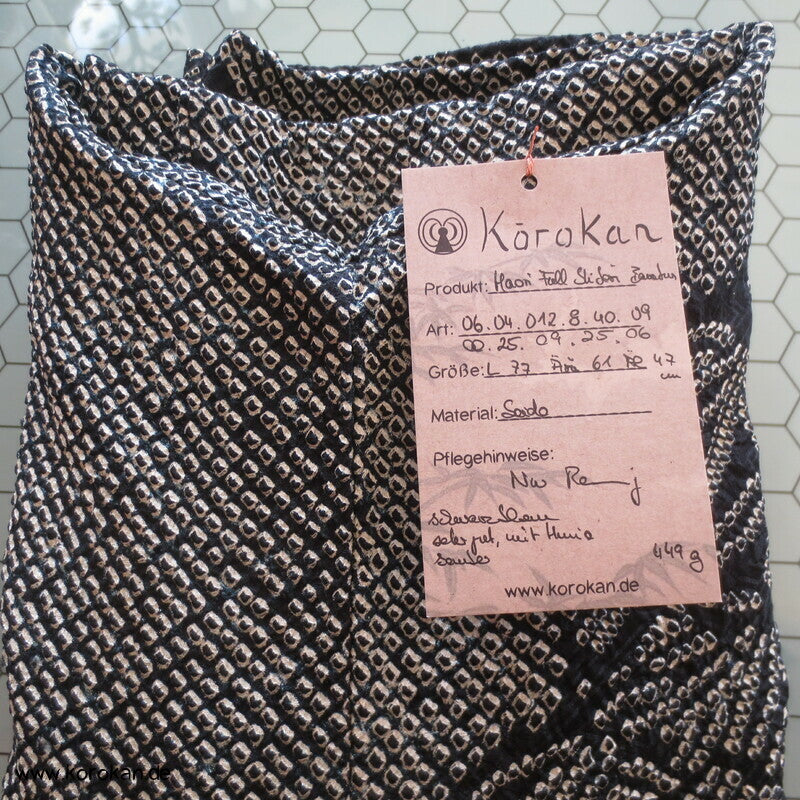 Kōrokan
Produkt: Haori Full Shibori
Art: 06.04.012.8.40.09
00.25.09.25.06
Größe: L 77 Ärm 61 47
cm
Material: Seide
Pflegehinweise:
Nur
sehr gut, mit
sauber
449 g
www.korokan.de
www.korokan.de